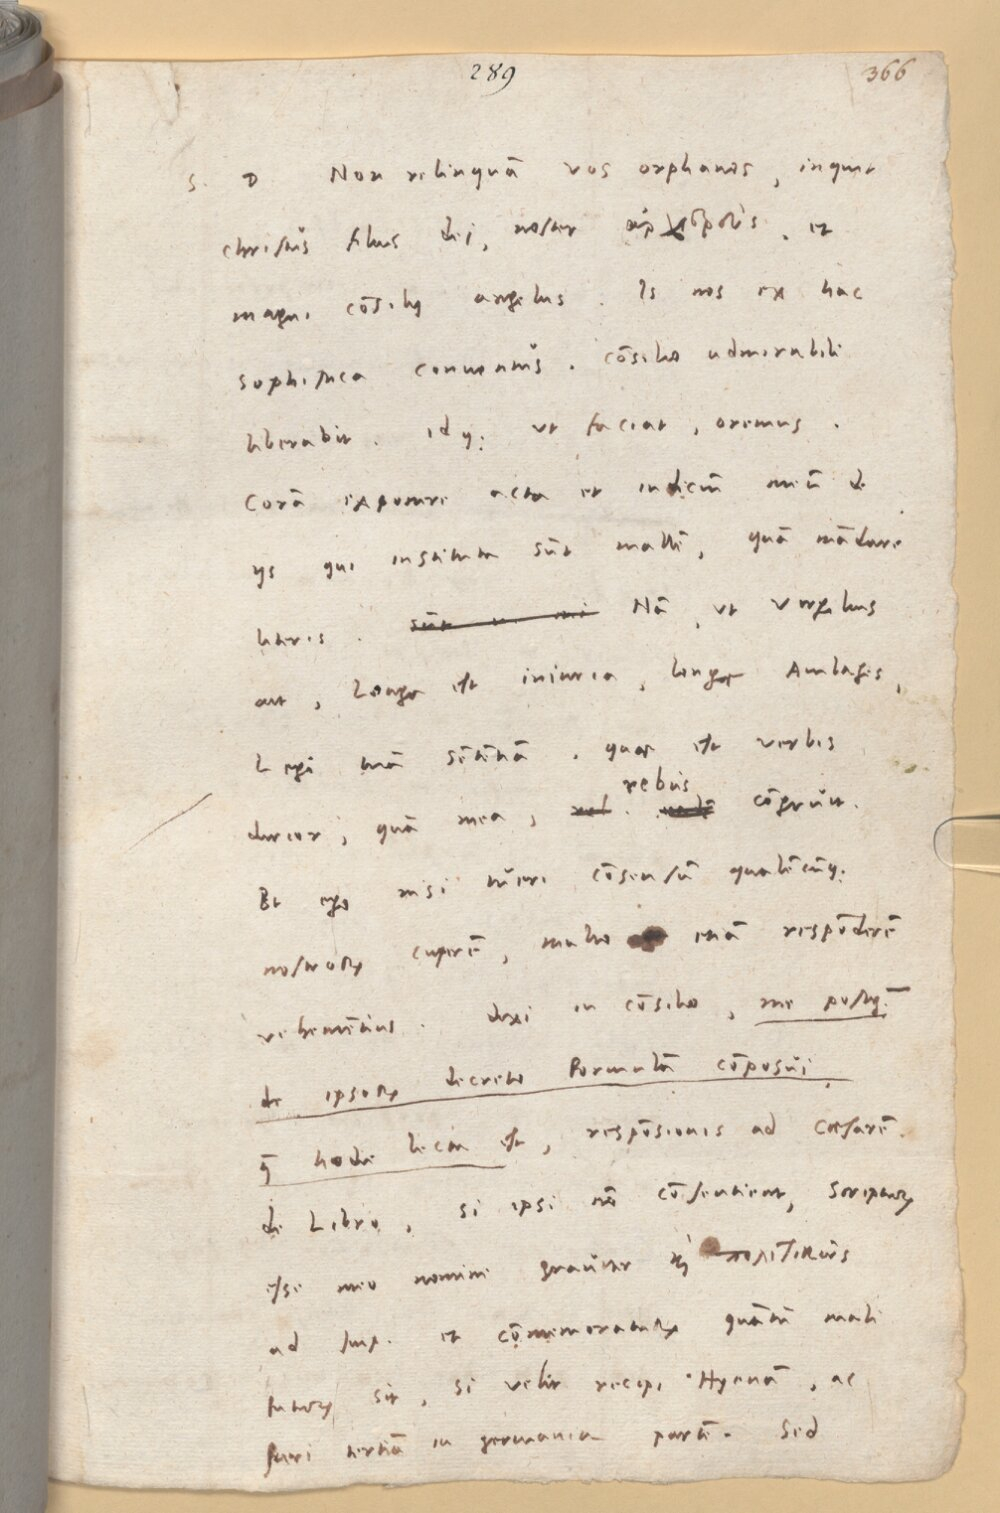 289
366
S. D. Non relinquā vos orphanos, inquit
christūs filius dei, noster, et
magni cōsilij angelus. Is nos ex hac
sophistica conventūs. cōsilio admirabili
liberabit. idq; ut faciat, oremus.
Corā exponere acta et iudiciū meū de
ijs qui instituta sūt mallē, quā mādare
literis. Nā, ut Vergilius
ait, Longa est iniuria, longae Ambages,
Legi tuā sētētiā. quae est verbis
durior, quā mea, rebus cōgruit.
Et ego nisi tueri cōsensū qualēcūq;
nostrorum cuperē, malo etiā respōderē
vehemētius. dixi in cōsilio, me postq̄
de ipsorum decreto formulā cōposui,
q̄ hodie lecta est, respōsionis ad Caesarē.
de Libro, si ipsi nō cōsentient, Scripturum
esse meo nomine graviter
ad Imp. et cōmemoraturum quātū mali
futurum sit, si velit recipi Hyenā, ac
fieri tertiā in germania partē. Sed